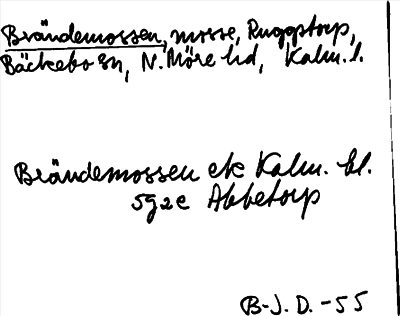 Brändemossen, mosse, Ruggstorp,
Bäckebo sn, N. Möre hd, Kalm. l.
Brändemossen ek Kalm. bl.
5g2e Abbetorp
B-J. D. -55